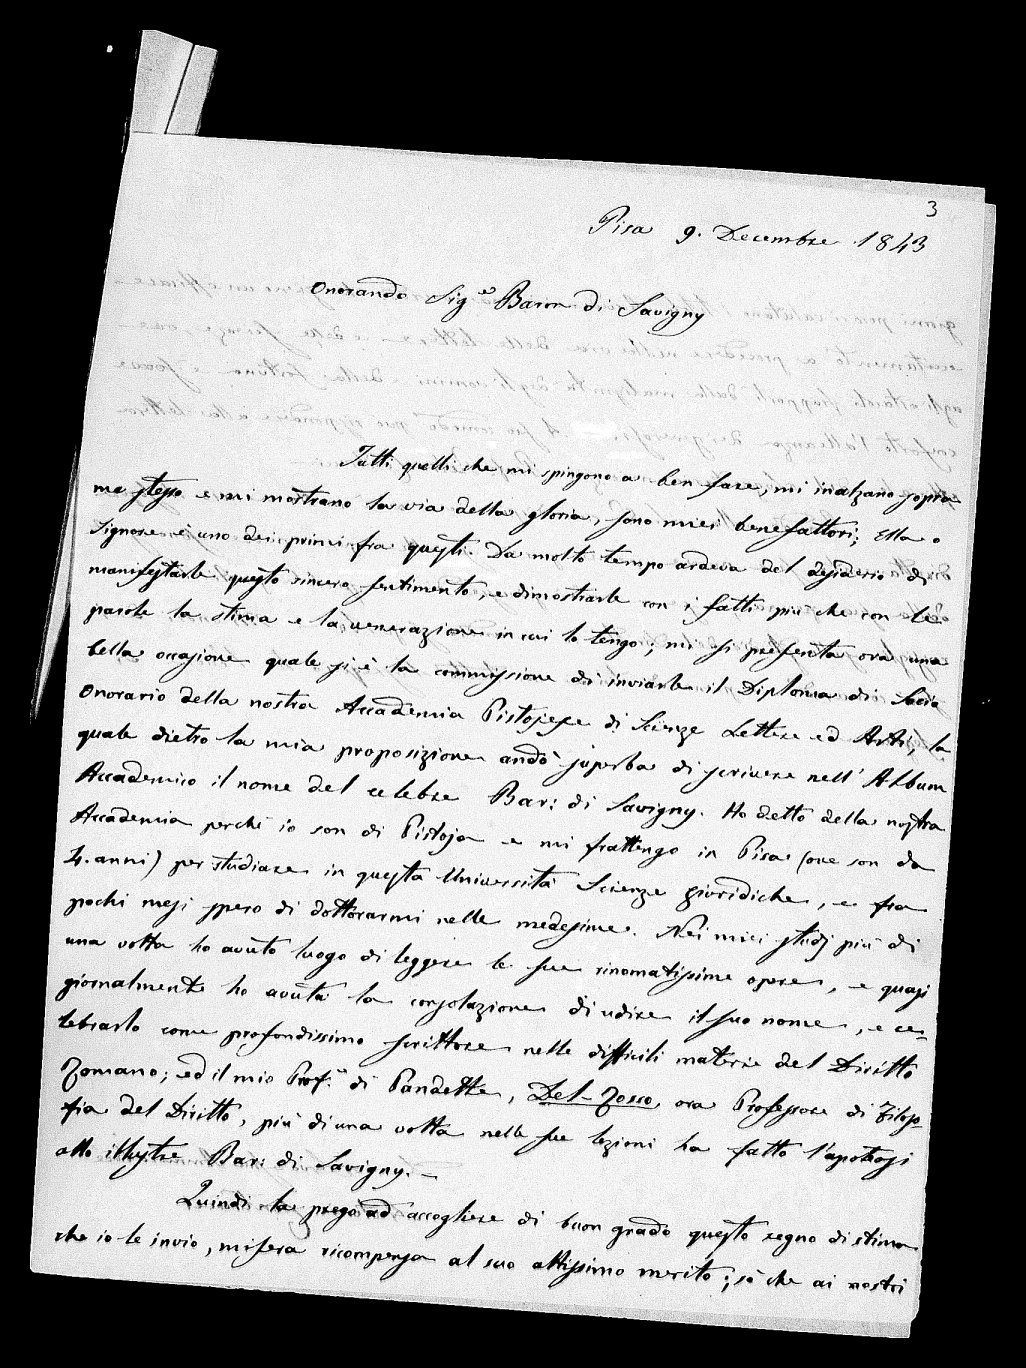 3
Pisa 9. Decembre 1843
Onorando Sig.e Baron di Savigny
Tutti quelli che mi spingono a ben fare, mi inalzano sopra
me stesso e mi mostrano la via della gloria, sono miei benefattori; Ella o
Signore è uno dei primi fra questi. Da molto tempo ardeva del desiderio di
manifestarle questo sincero sentimento, e dimostrarle con i fatti più che con le
parole la stima e la venerazione in cui la tengo; mi si presenta ora una
bella occasione quale si è la commissione di inviarle il Diploma di Socio
Onorario della nostra Accademia Pistojese di Scienze Lettere ed Arti, la
quale dietro la mia proposizione andò superba di scrivere nell' Album
Accademico il nome del celebre Bar: di Savigny. Ho detto della nostra
Accademia perchè io son di Pistoja e mi trattengo in Pisa (ove son da
4. anni) per studiare in questa Università Scienze giuridiche, e fra
pochi mesi spero di dottorarmi nelle medesime. Nei miei studj più di
una volta ho avuto luogo di leggere le sue rinomatissime opere, e quasi
giornalmente ho avuta la consolazione di udire il suo nome, e ce-
lebrarlo come profondissimo scrittore nelle difficili materie del Diritto
Romano; ed il mio Prof.e di Pandette, Del-Rosso, ora Professore di Filoso-
fia del Diritto, più di una volta nelle sue lezioni ha fatto l'apoteosi
allo illustre Bar: di Savigny. –
Quindi la prego ad accogliere di buon grado questo segno di stima
che io le invio, misera ricompensa al suo altissimo merito; sò che ai nostri